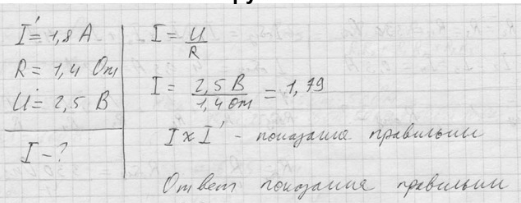 I' = 1,8 А
R = 1,4 Ом
U = 2,5 В
I - ?
I = U/R
I = 2,5 В / 1,4 Ом = 1,79
I x I' - показание правильны
Ответ показание правильны